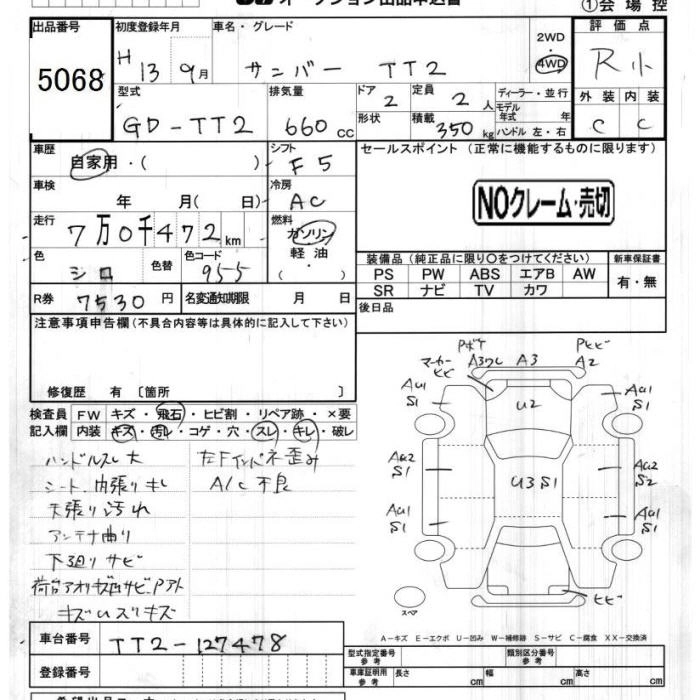 オークション出品申込書
①会場控
出品番号 5068
初度登録年月 H 13 9月
車名・グレード サンバー TT2
2WD
4WD
評価点 R 小
外装 内装
C C
型式 GD-TT2
排気量 660 cc
ドア 2
形状
定員 2 人
積載 350 kg
ディーラー・並行
モデル年式 年
ハンドル 左・右
車歴 自家用・( )
シフト F5
セールスポイント (正常に機能するものに限ります)
NOクレーム・売切
車検 年 月( 日)
冷房 AC
走行 7万0千472km
燃料 ガソリン
軽油
( ・ )
色 シロ
色替
色コード 955
装備品(純正品に限り〇をつけてください)
新車保証書
PS PW ABS エアB AW
SR ナビ TV カワ
有・無
R券 7530円
名変通知期限 月 日
後日品
注意事項申告欄(不具合内容等は具体的に記入して下さい)
修復歴 有 〔箇所 〕
検査員記入欄
FW キズ・飛石・ヒビ割・リペア跡・×要
内装 キズ・汚レ・コゲ・穴・スレ・キレ・破レ
ハンドルスレ大
シート、内張りキレ
天張り汚れ
アンテナ曲り
下廻りサビ
キズUズリキズ
左Fインパネ歪み
A/C不良
Pボケ
マーカーヒビ
A3ワレ
A3
Pヒビ
A2
AU1
S1
AU1
S1
U2
AU2
S1
U3 S1
AU2
S2
AU1
S1
AU1
S1
ヒビ
スペア
A-キズ E-エクボ U-凹み W-補修跡 S-サビ C-腐食 XX-交換済
車台番号 TT2-127478
登録番号
型式指定番号 参考
類別区分番号 参考
車庫証明用 参考
長さ cm
幅 cm
高さ cm